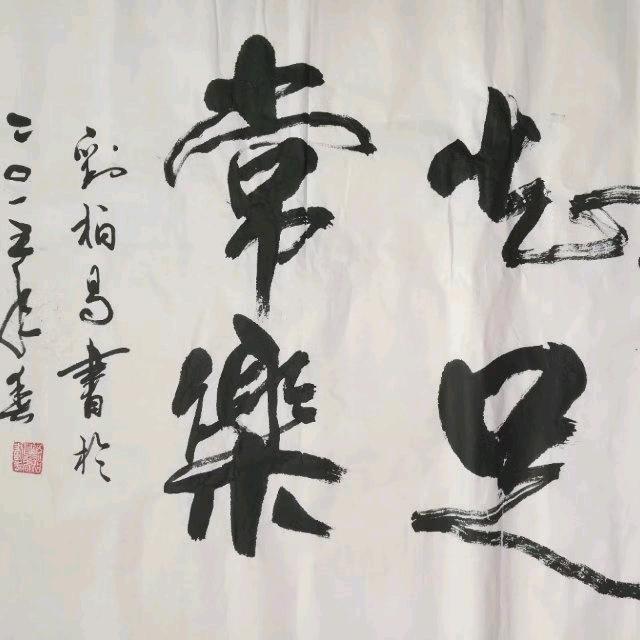 知足
常樂
劉柏昌書於
二〇一五年春